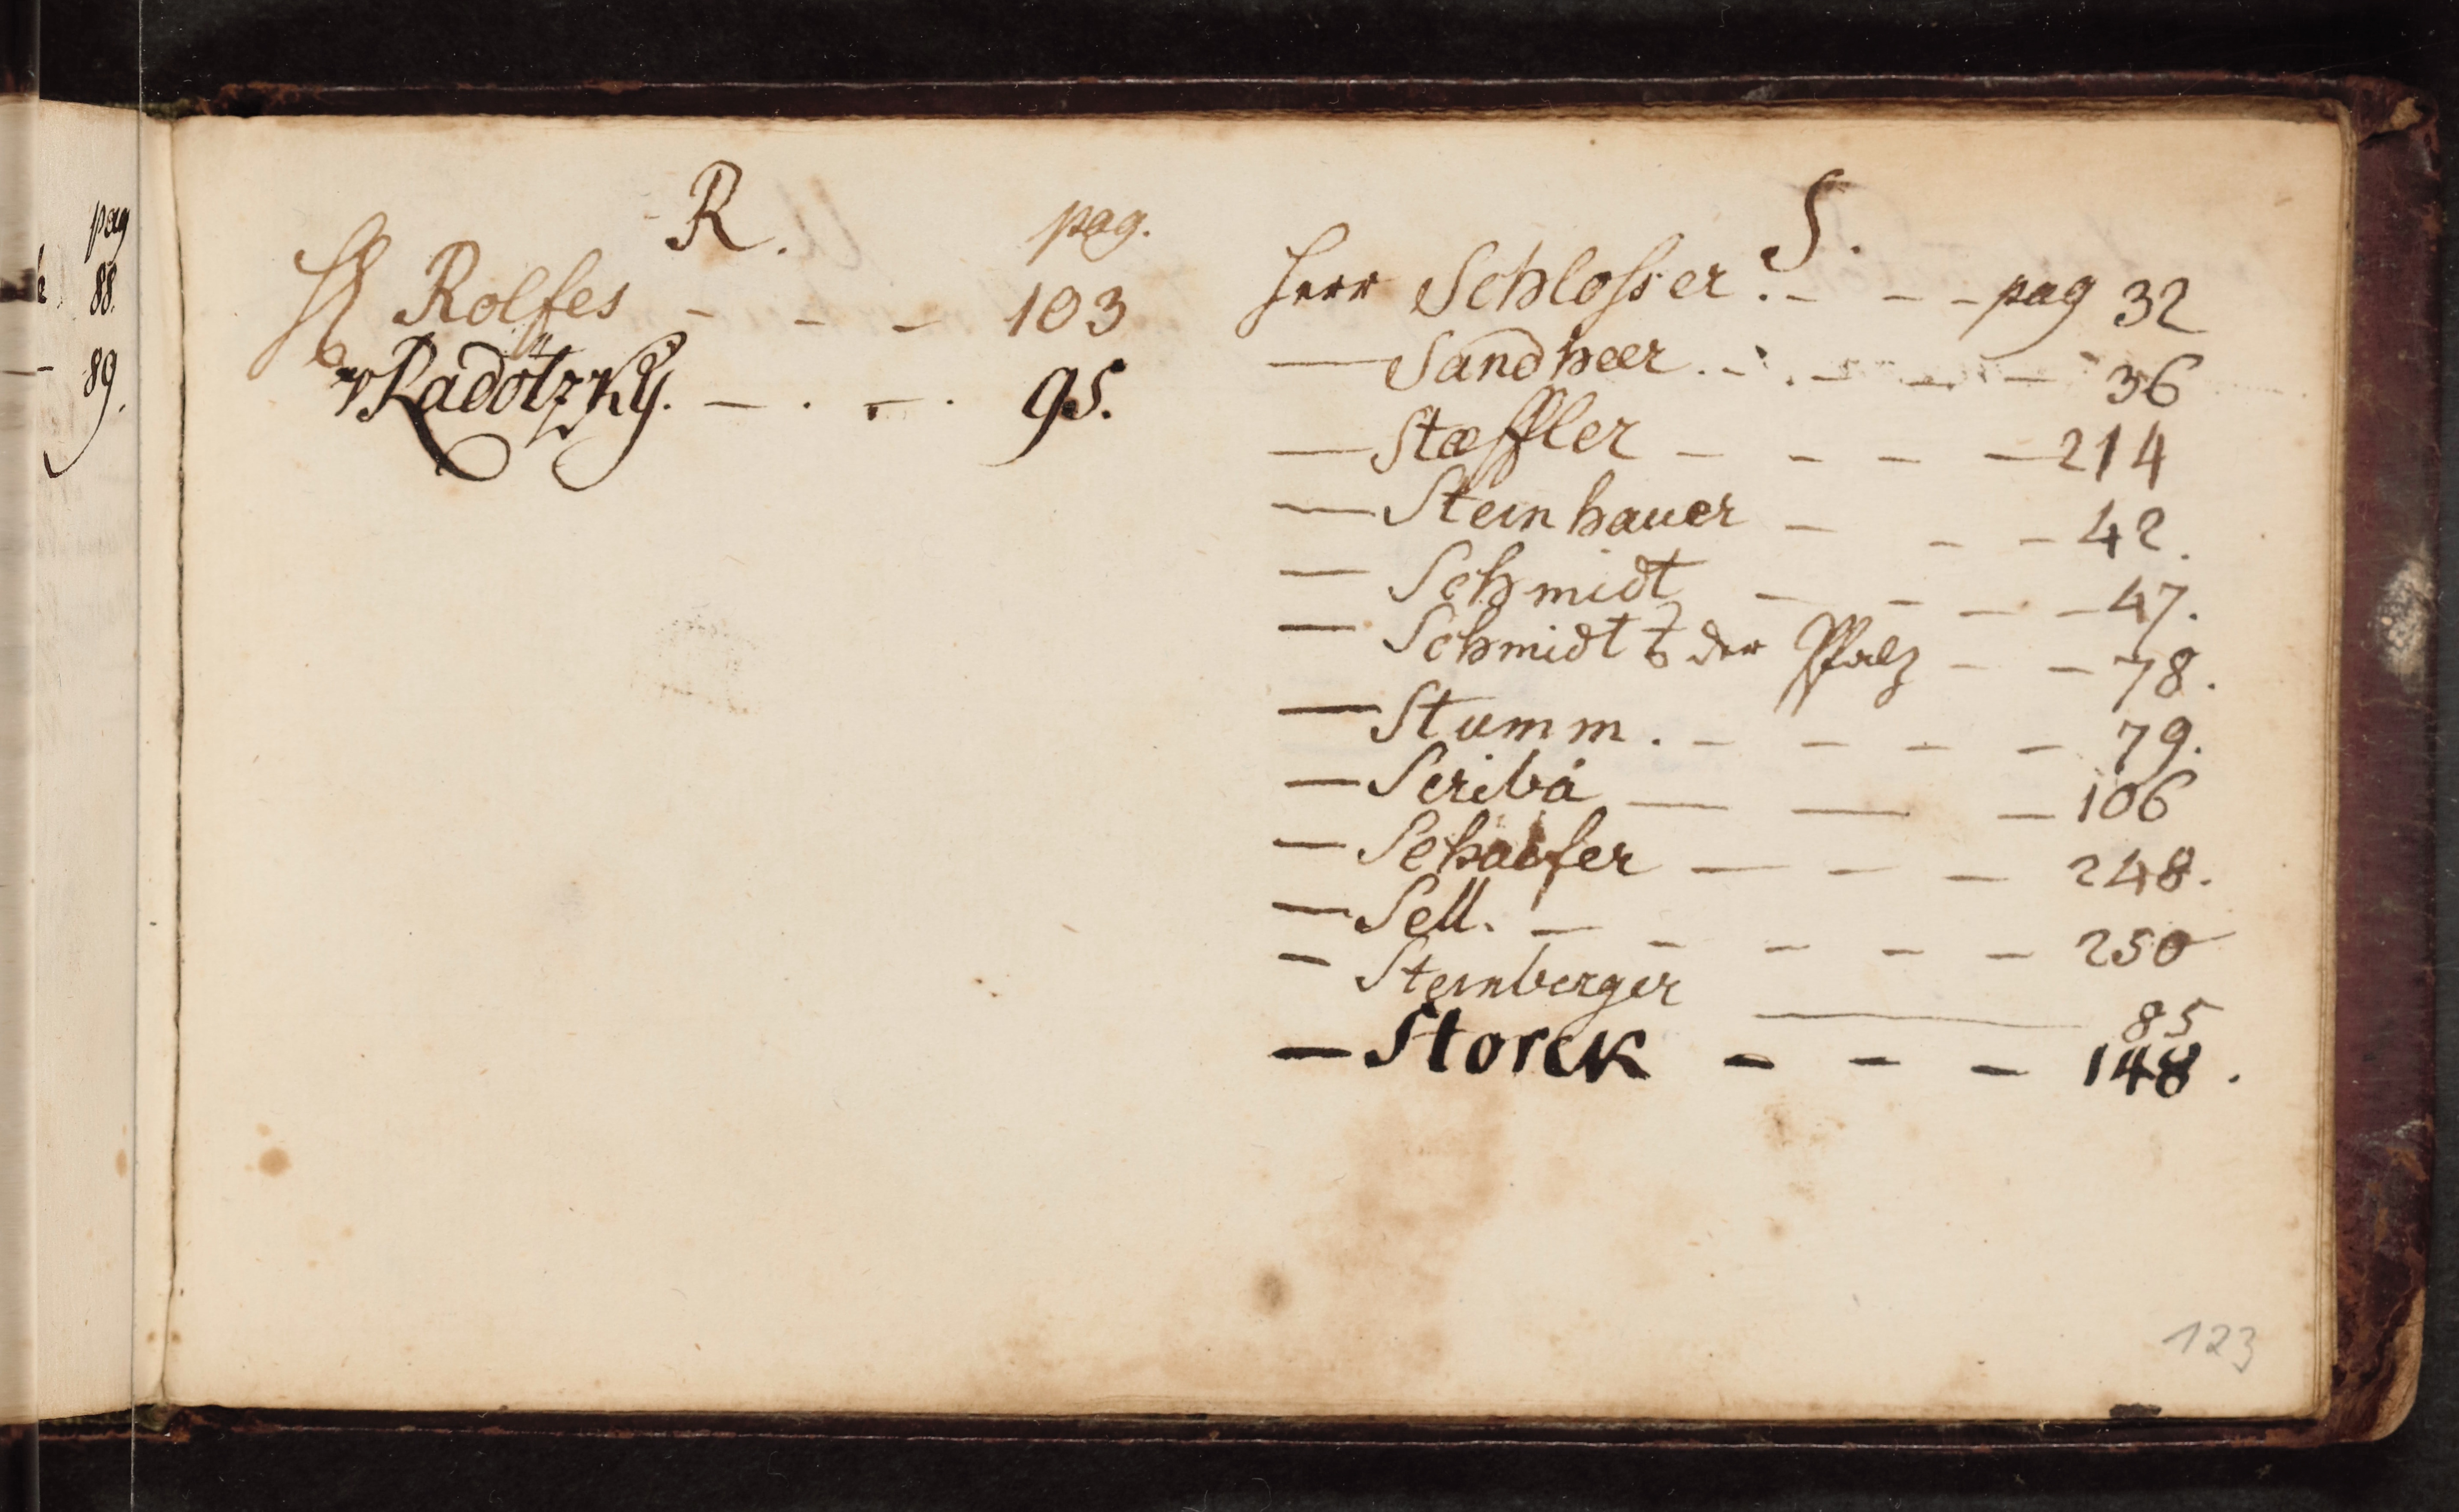 pag
88.
89.
R.
pag.
H Rolfes - - - 103
v Radötzkÿ. - . - . 95.
S.
Herr Schlosser. - - - pag 32
— Sandheer. - . - - - 36
— Stæffler - - - - 214
— Steinhauer - - - 42.
— Schmidt - - - - 47.
— Schmidt der Pfalz - - 78.
— Stumm. - - - - 79.
— Scriba — — - 106
— Schaefer - - - 248.
— Sell. - - - - - 250
- Steinberger — 85
— Storck - - - 148.
123